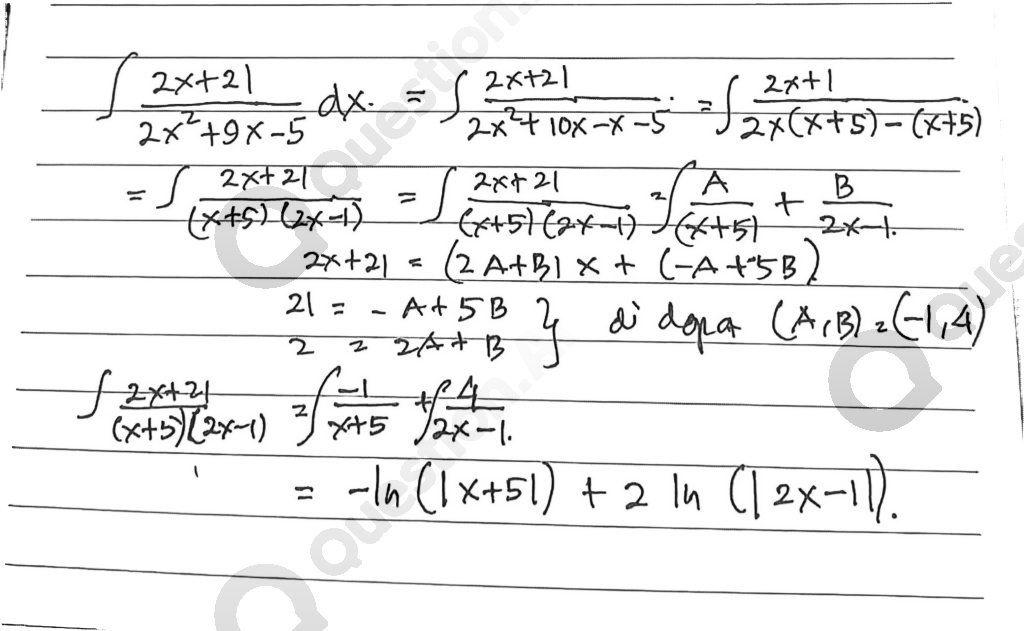 ∫ (2x+21)/(2x²+9x-5) dx. = ∫ (2x+21)/(2x²+10x-x-5) = ∫ (2x+1)/(2x(x+5)-(x+5))
= ∫ (2x+21)/((x+5)(2x-1)) = ∫ (2x+21)/((x+5)(2x-1)) = ∫ A/(x+5) + B/(2x-1).
2x+21 = (2A+B)x + (-A+5B)
21 = -A+5B
2 = 2A+B } di dapat (A,B) = (-1,4)
∫ (2x+21)/((x+5)(2x-1)) = ∫ -1/(x+5) + ∫ 4/(2x-1).
= -ln(|x+5|) + 2 ln(|2x-1|).